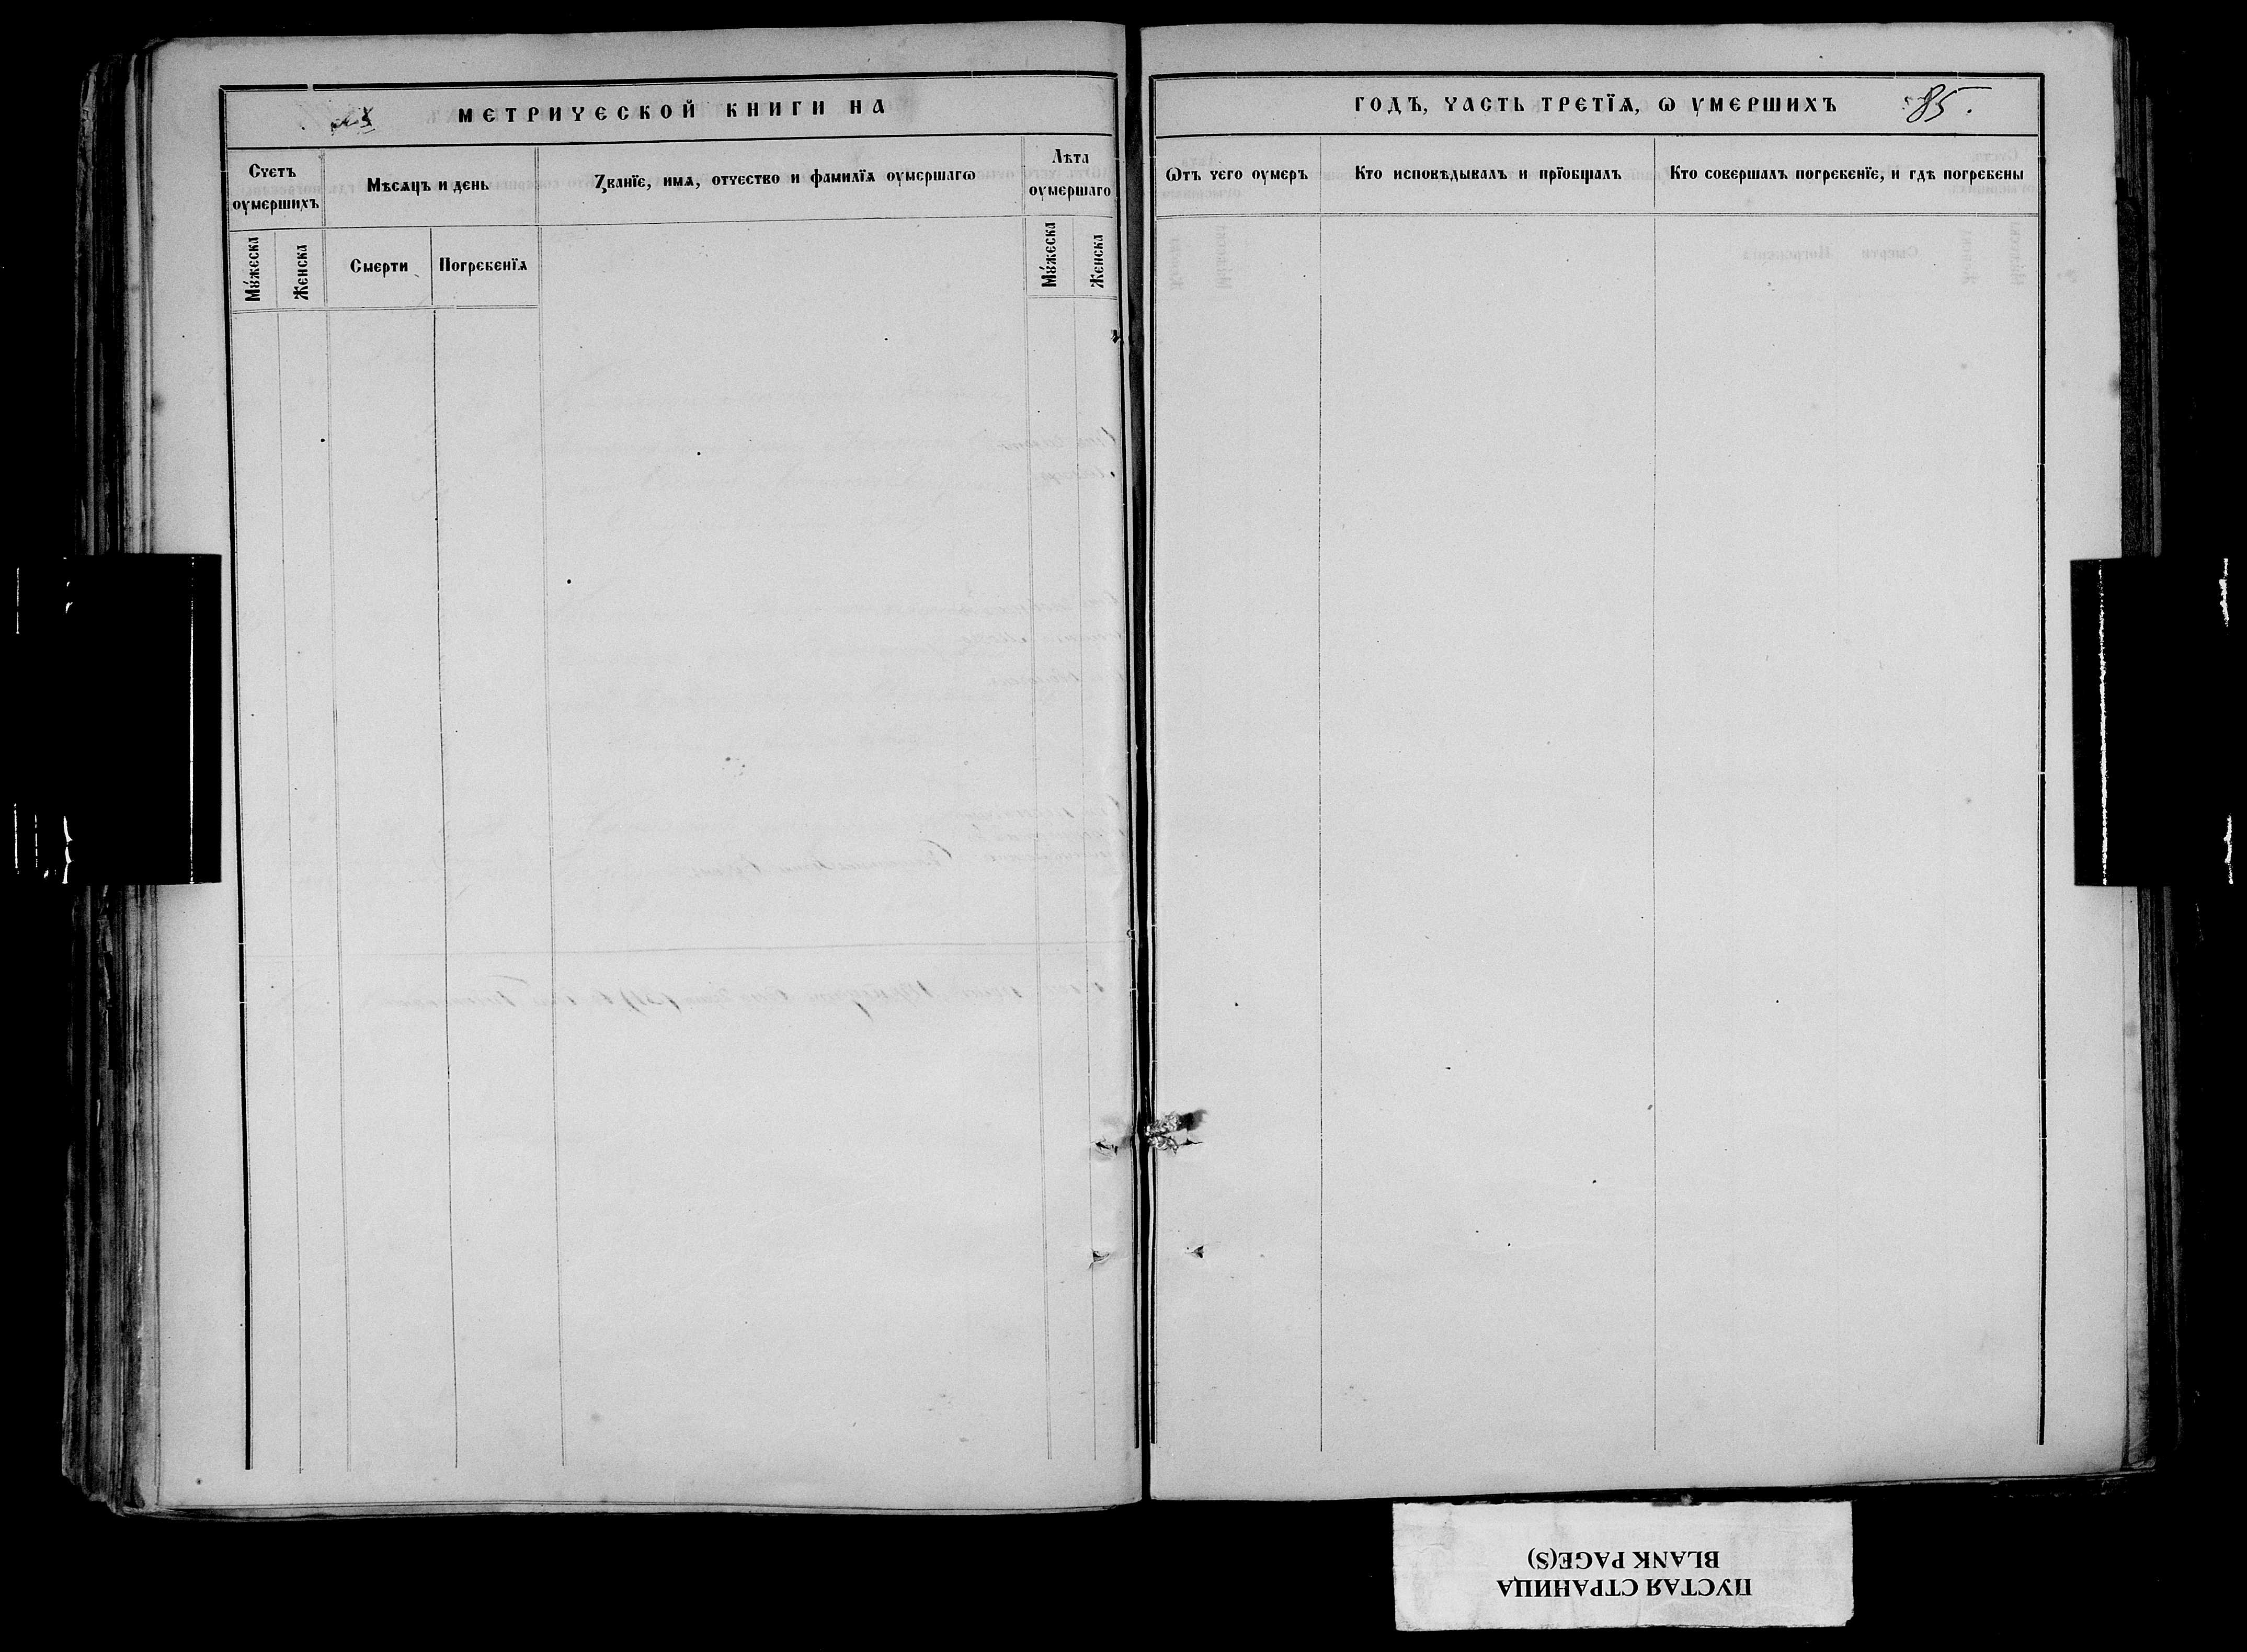 МЕТРИЧЕСКОЙ КНИГИ НА
Счетъ оумершихъ
Мѣсѧцъ и день
Званїе, имѧ, отчество и фамилїѧ оумершагѡ
Лѣта оумершаго
Мꙋ́жеска
Женска
Смерти
Погребенїѧ
Мꙋ́жеска
Женска
ГОДЪ, ЧАСТЬ ТРЕТЇѦ, Ѡ УМЕРШИХЪ
85.
Ѿтъ чего оумеръ
Кто исповѣдывалъ и прїобщалъ
Кто совершалъ погребенїе, и гдѣ погребены
ПУСТАЯ СТРАНИЦА
BLANK PAGE(S)